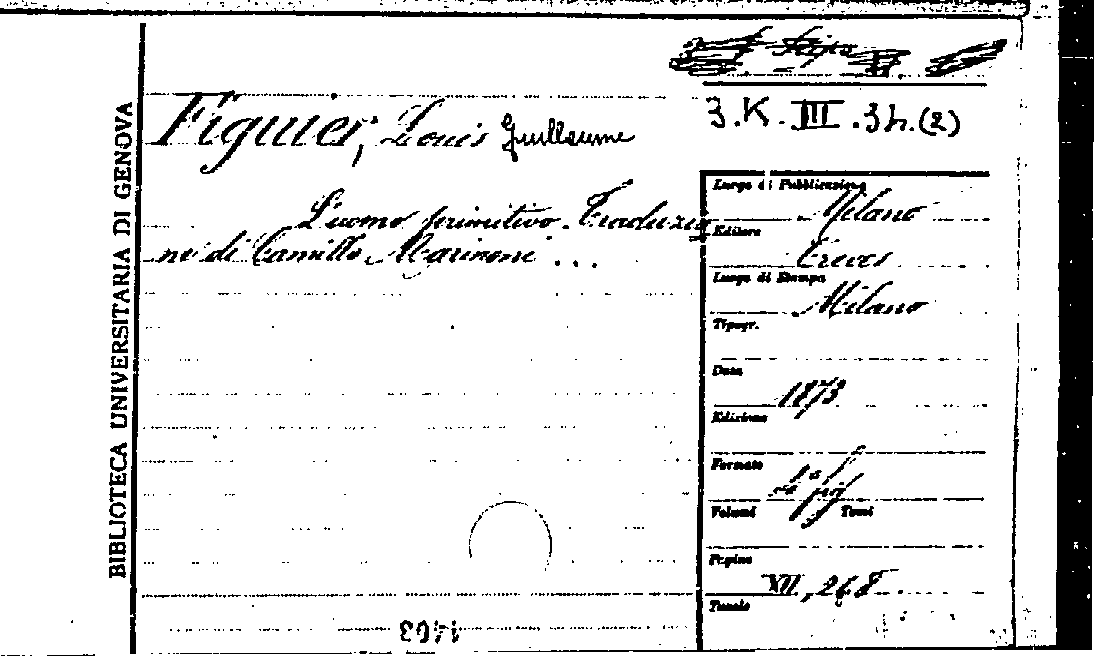 BIBLIOTECA UNIVERSITARIA DI GENOVA
3.K.III.3h.(2)
Figuier, Louis Guillaume
L'uomo primitivo. Traduzio
ne di Camillo Marinoni ...
Luogo di Pubblicazione
Milano
Editore
Treves
Luogo di Stampa
Milano
Tipogr.
Data
1873
Edizione
Formato
Volumi Tomi
Pagine
XII, 268
Tavole